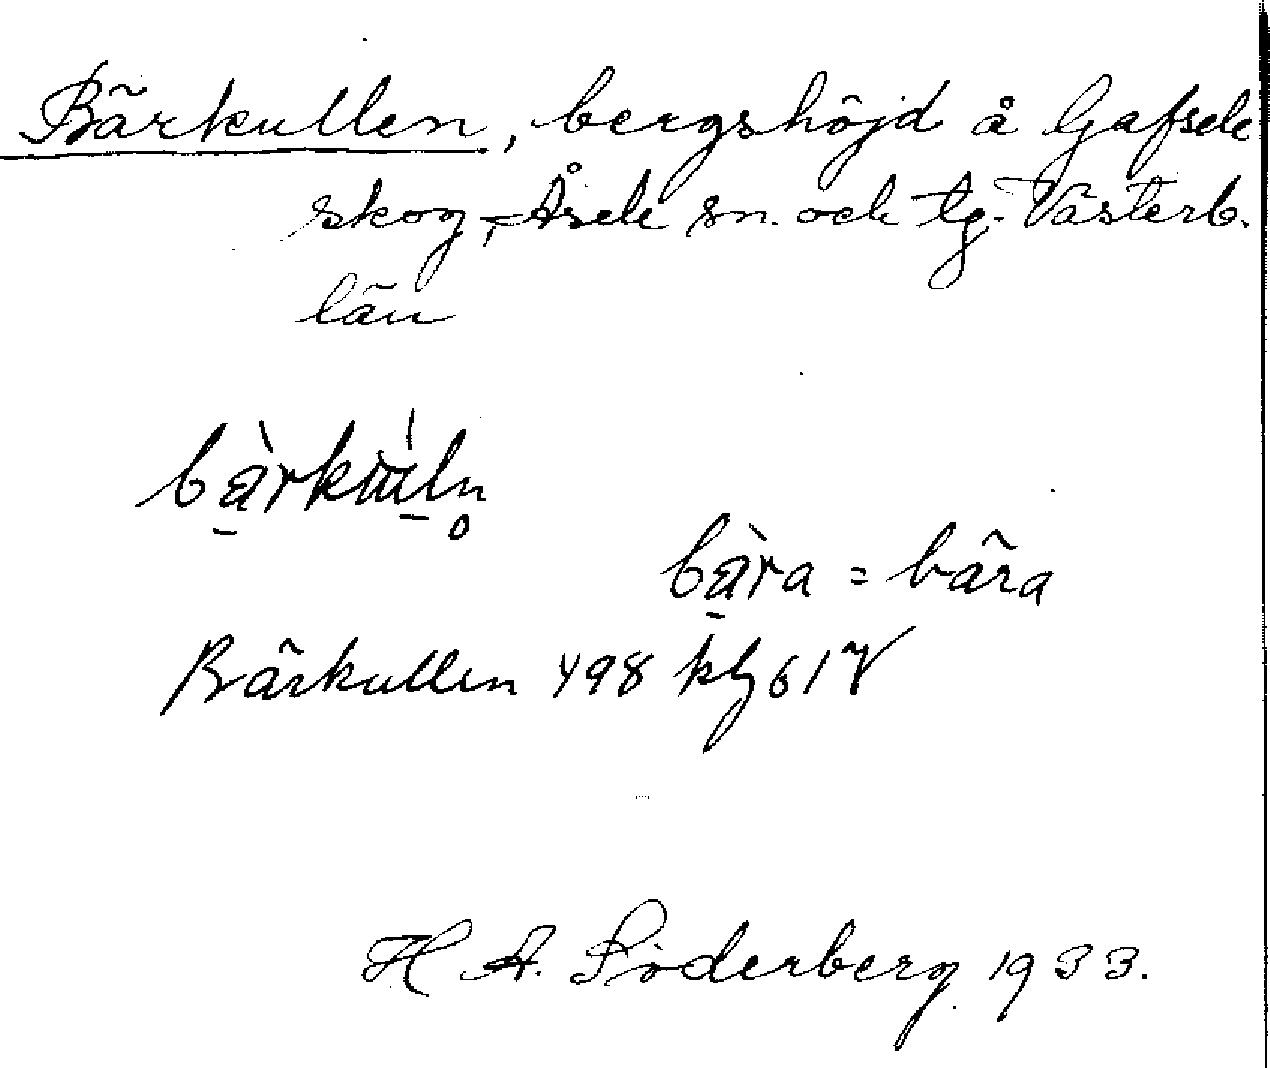 Bärkullen, bergshöjd å Gafsele
skog, Åsele sn. och tg. Västerb.
län
bära = bära
Bärkullen 498 kbl 61 V
H A. Söderberg 1933.